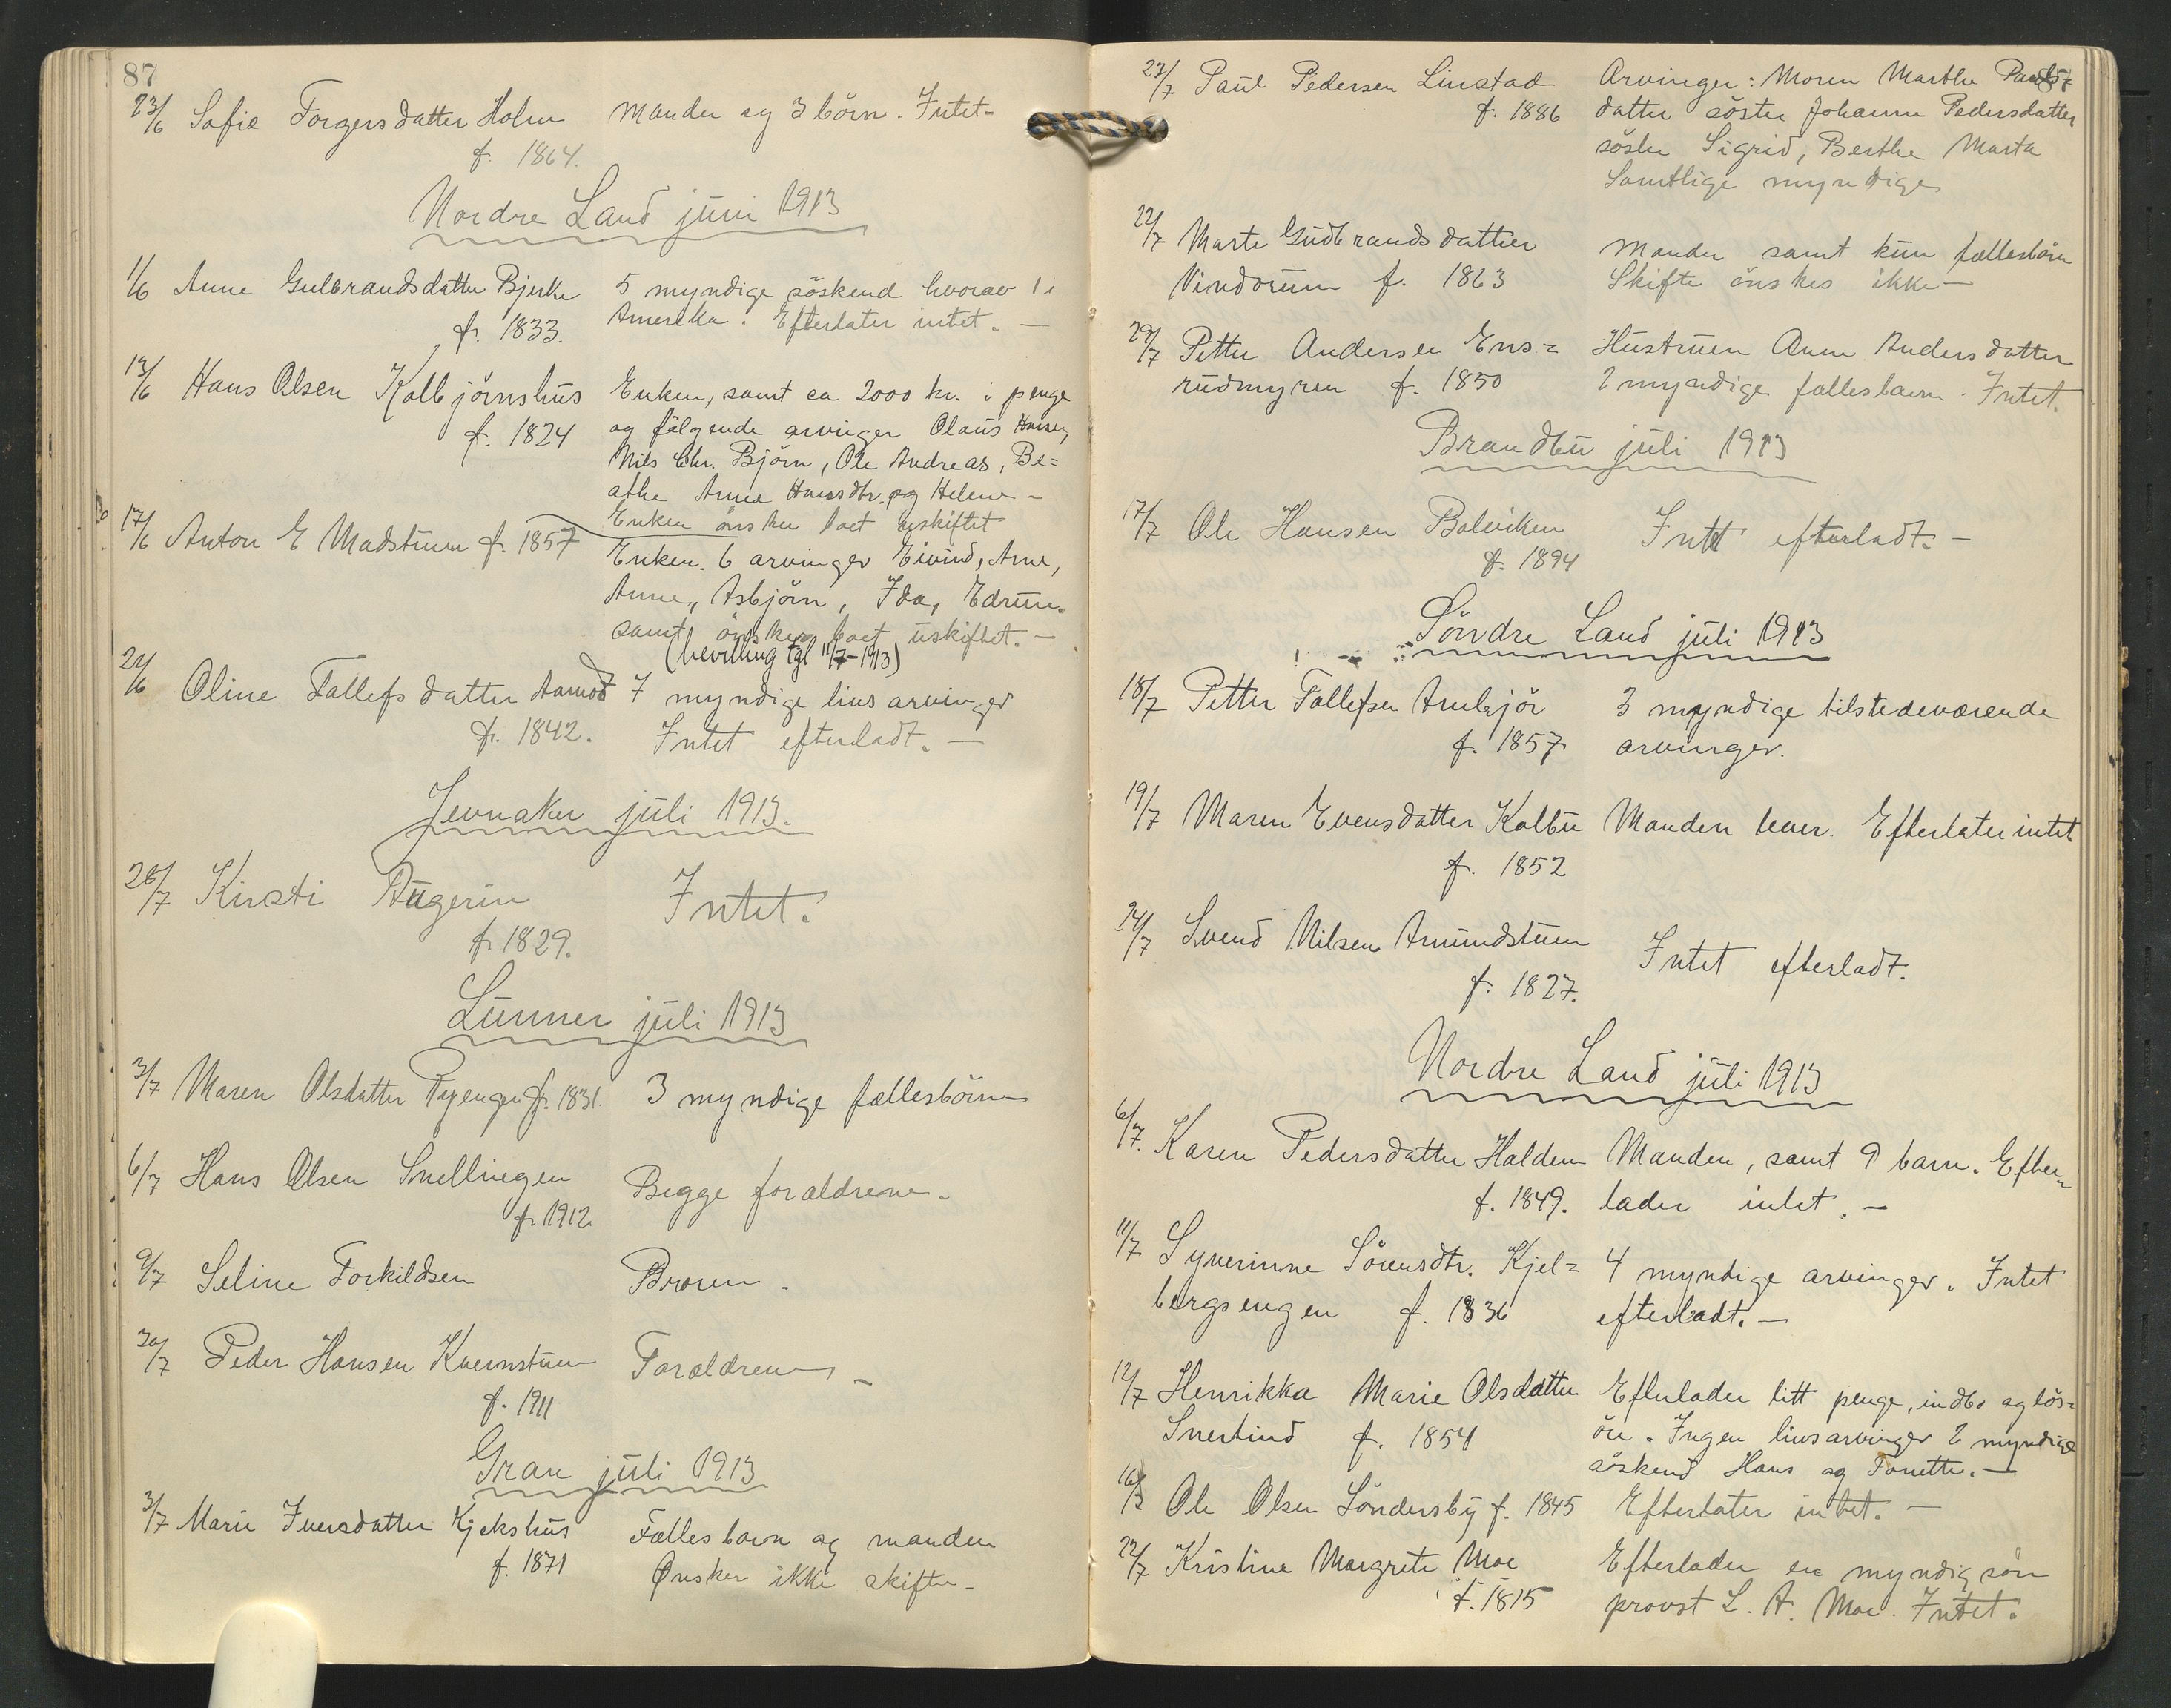 87
23/6 Sofie Torgersdatter Holm Manden og 3 börn. Intet-
f. 1864.
Nordre Land juni 1913
1/6 Anne Gulbrandsdatter Bjerke 5 myndige söskend hvorav 1 i
f. 1833. Amerika. Efterlater intet. —
13/6 Hans Olsen Kolbjörnshus Enken, samt ca 2000 kr. i penge
f. 1824 og fölgende arvinger Olaus Hansen,
Nils Chr. Björn, Ole Andreas, Be=
athe Anne Hansdtr. og Helene -
Enken önsker boet uskiftet
17/6 Anton E Madstuen f. 1857 Enken. 6 arvinger Eivind, Arne,
Anne, Asbjörn, Ida, Edrun.
samt önsker boet uskiftet. —
(bevilling tgl 11/7-1913)
21/6 Oline Tollefsdatter Aamot 7 myndige livsarvinger
f. 1842. Intet efterladt. —
Jevnaker juli 1913.
26/7 Kirsti Augerin Intet.
f. 1829.
Lunner juli 1913
3/7 Maren Olsdatter Ryengen f. 1831. 3 myndige fællesbörn
6/7 Hans Olsen Snellingen Begge forældrene.
f. 1912
9/7 Seline Torkildsen Broren -
30/7 Peder Hansen Kvernstuen Forældrene -
f. 1911
Gran juli 1913
3/7 Marie Iversdatter Kjekshus Fælles barn og manden
f. 1871 Ønsker ikke skifte -
23/7 Paul Pedersen Linstad Arvinger: Moren Marthe Pauls=
f. 1886 datter söster Johanne Pedersdatter
söster Sigrid, Berthe Marta
Samtlige myndige
22/7 Marte Gudbrandsdatter Manden samt kun fællesbörn
Vindorum f. 1863 Skifte önskes ikke —
29/7 Petter Andersen Ens= Hustruen Anne Andersdatter
rudmyren f. 1850 2 myndige fællesbarn. Intet.
Brandbu juli 1913
17/7 Ole Hansen Bolviken Intet efterladt. —
f. 1894
Söndre Land juli 1913
18/7 Petter Tollefsen Arnbjör 3 myndige tilstedeværende
f. 1857 arvinger.
19/7 Maren Evensdatter Kolbu Manden lever. Efterlater intet
f. 1852
24/7 Svend Nilsen Amundstuen Intet efterladt.
f. 1827.
Nordre Land juli 1913
6/7. Karen Pedersdatter Halden Manden, samt 9 barn. Efter=
f. 1849. lader intet. —
11/7 Syverinne Sörensdtr. Kjel= 4 myndige arvinger. Intet
bergsengen f. 1836 efterladt. —
12/7 Henrikka Marie Olsdatter Efterlader litt penge, indbo og lös=
Snertind f. 1854 öre. Ingen livsarvinger 2 myndige
söskend Hans og Tonette. —
16/7 Ole Olsen Söndersby f. 1845 Efterlater intet. —
22/7 Kristine Margrete Moe Efterlader en myndig sön
f. 1815 provst L. A. Moe. Intet.